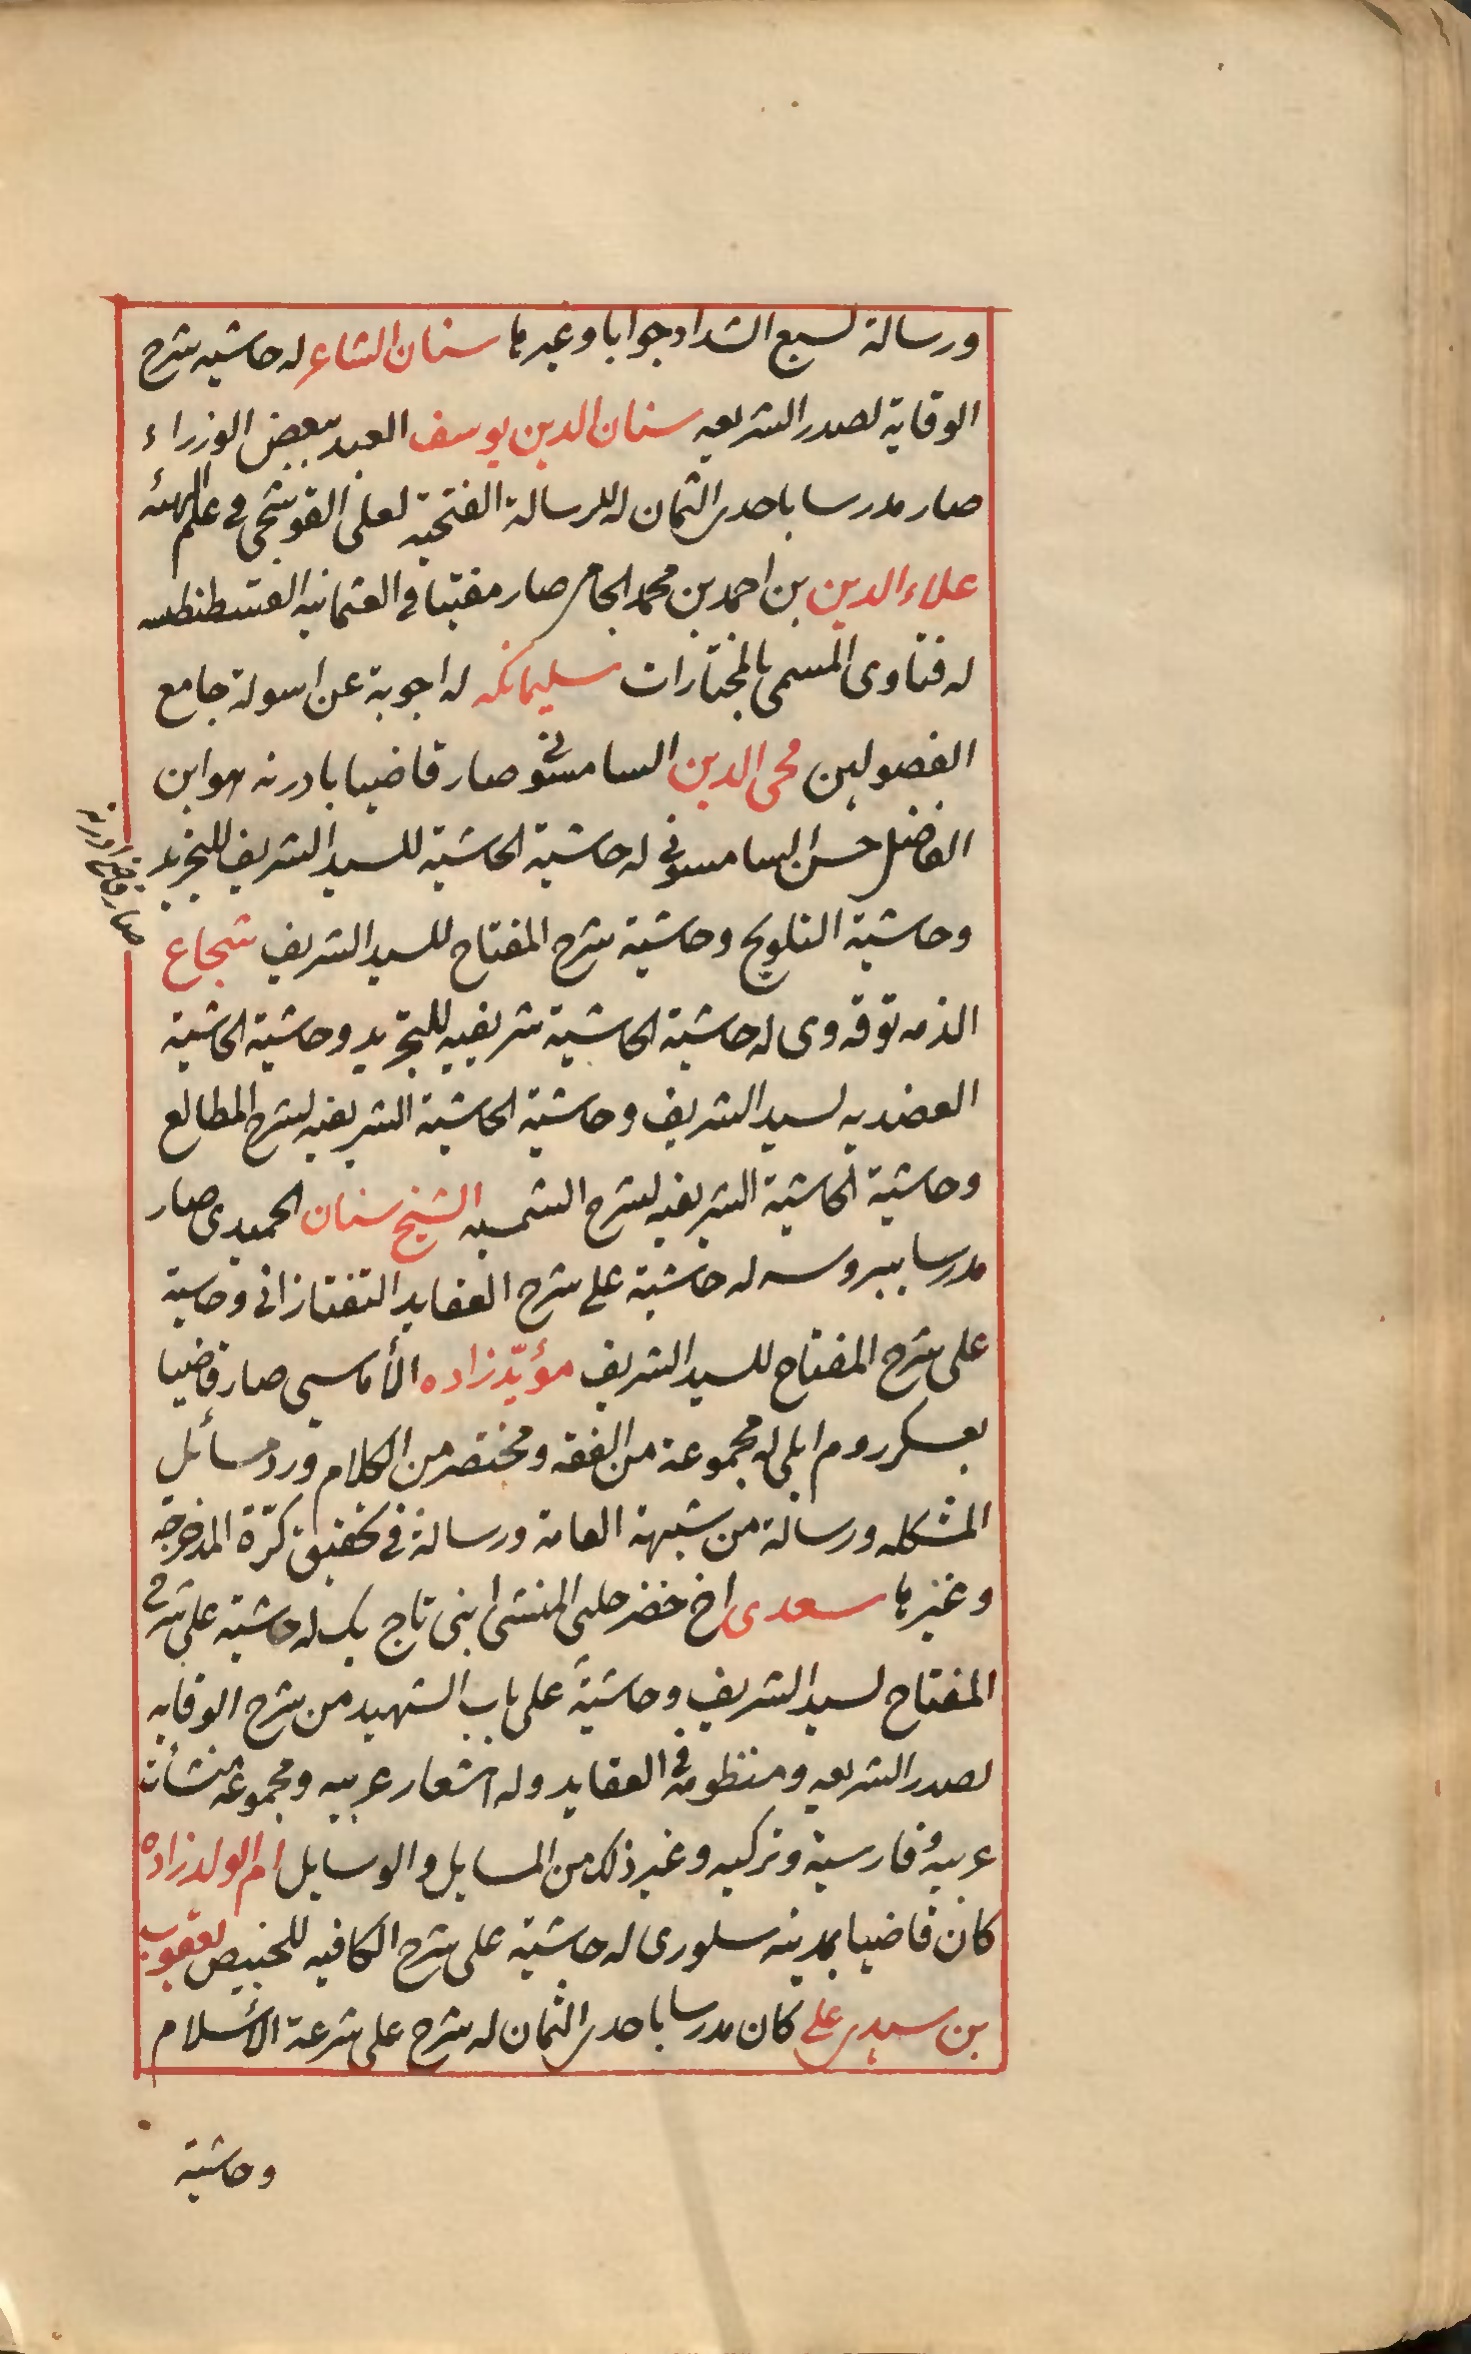 ورسالة لسبع الشداد جوابا وغيرها سنان الشاعر له حاشيه شرح
الوقاية لصدر الشريعه سنان الدين يوسف العبد ببعض الوزراء
صار مدرسا باحدى الثمان له للرسالة الفتحية لعلى القوشجى فى علم الهيئه
علاء الدين بن احمد بن محمد الجامى صار مفتيا فى العثمانيه القسطنطنيه
له فتاوى المسمى بالمختارات سليمانكه له اجوبة عن اسولة جامع
الفصولين محى الدين السامسونى صار قاضيا بادرنه هو ابن
الفاضل حسن السامسونى له حاشية الحاشية للسيد الشريف للتجريد
صار قاضى ادرنه
وحاشية التلويح وحاشية شرح المفتاح للسيد الشريف شجاع
الذمه توقه وى له حاشية الحاشية شريفيه للتجريد وحاشية الحاشية
العضديه لسيد الشريف وحاشية الحاشية الشريفيه لشرح المطالع
وحاشية الحاشية الشريفيه لشرح الشمسيه الشيخ سنان الحميدى صار
مدرسا ببروسه له حاشية على شرح العقايد التفتازانى وحاسية
على شرح المفتاح للسيد الشريف مؤيّد زاده الأماسيى صار قاضيا
بعسكر روم ايلى له مجموعة من الفقه ومختصر من الكلام ورد مسائل
المشكله ورسالة من شبهة العامة ورسالة فى تحقيق كرّة المدحرجه
وغيرها سعدى اخ خضر حلبى المنشى ابنى تاج بك له حاشية على شرح
المفتاح لسيد الشريف وحاشية على باب الشهيد من شرح الوقايه
لصدر الشريعه ومنظومة فى العقايد وله اشعار عربيه ومجموعة منشأت
عربيه وفارسية وتركيه وغير ذلك من المسايل والوسايل ام الولد زاده
كان قاضيا بمدينه سلورى له حاشية على شرح الكافيه للخبيص يعقوب
بن سيدى على كان مدرسا باحدى الثمان له شرح على شرعة الأسلام
وحاشية